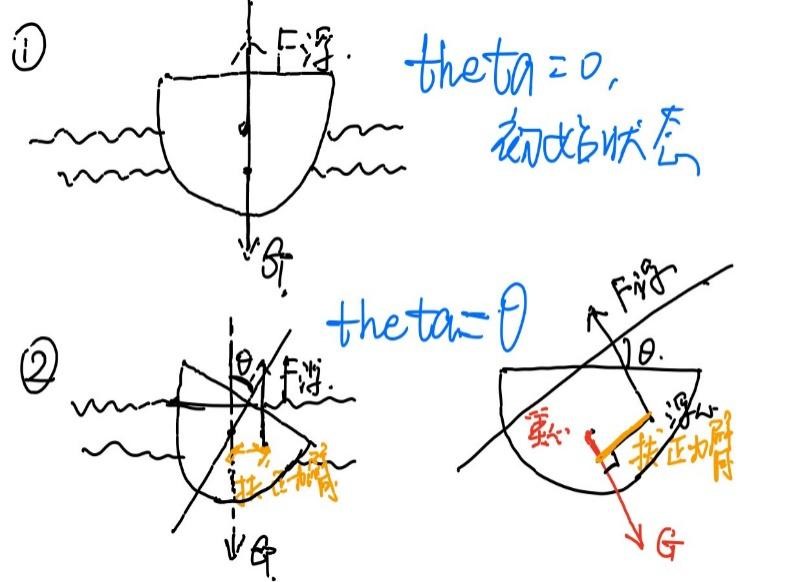 ①
F浮.
theta=0,
初始状态
G.
②
theta=θ
θ
F浮.
扶正力臂
G.
F浮
θ.
浮心
重心
扶正力臂
G